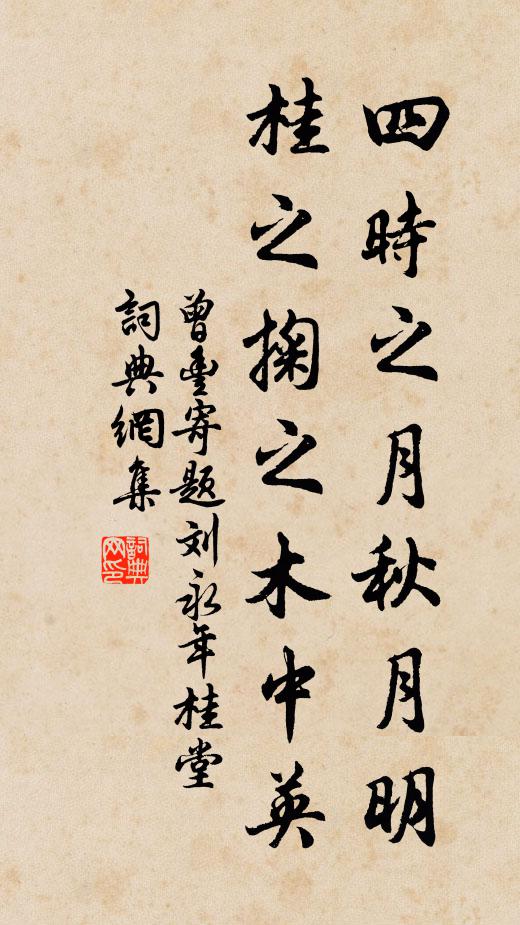 四時之月秋月明
桂之掬之木中英
曾豊寄題刘永年桂堂
詞典網集
詞典网印